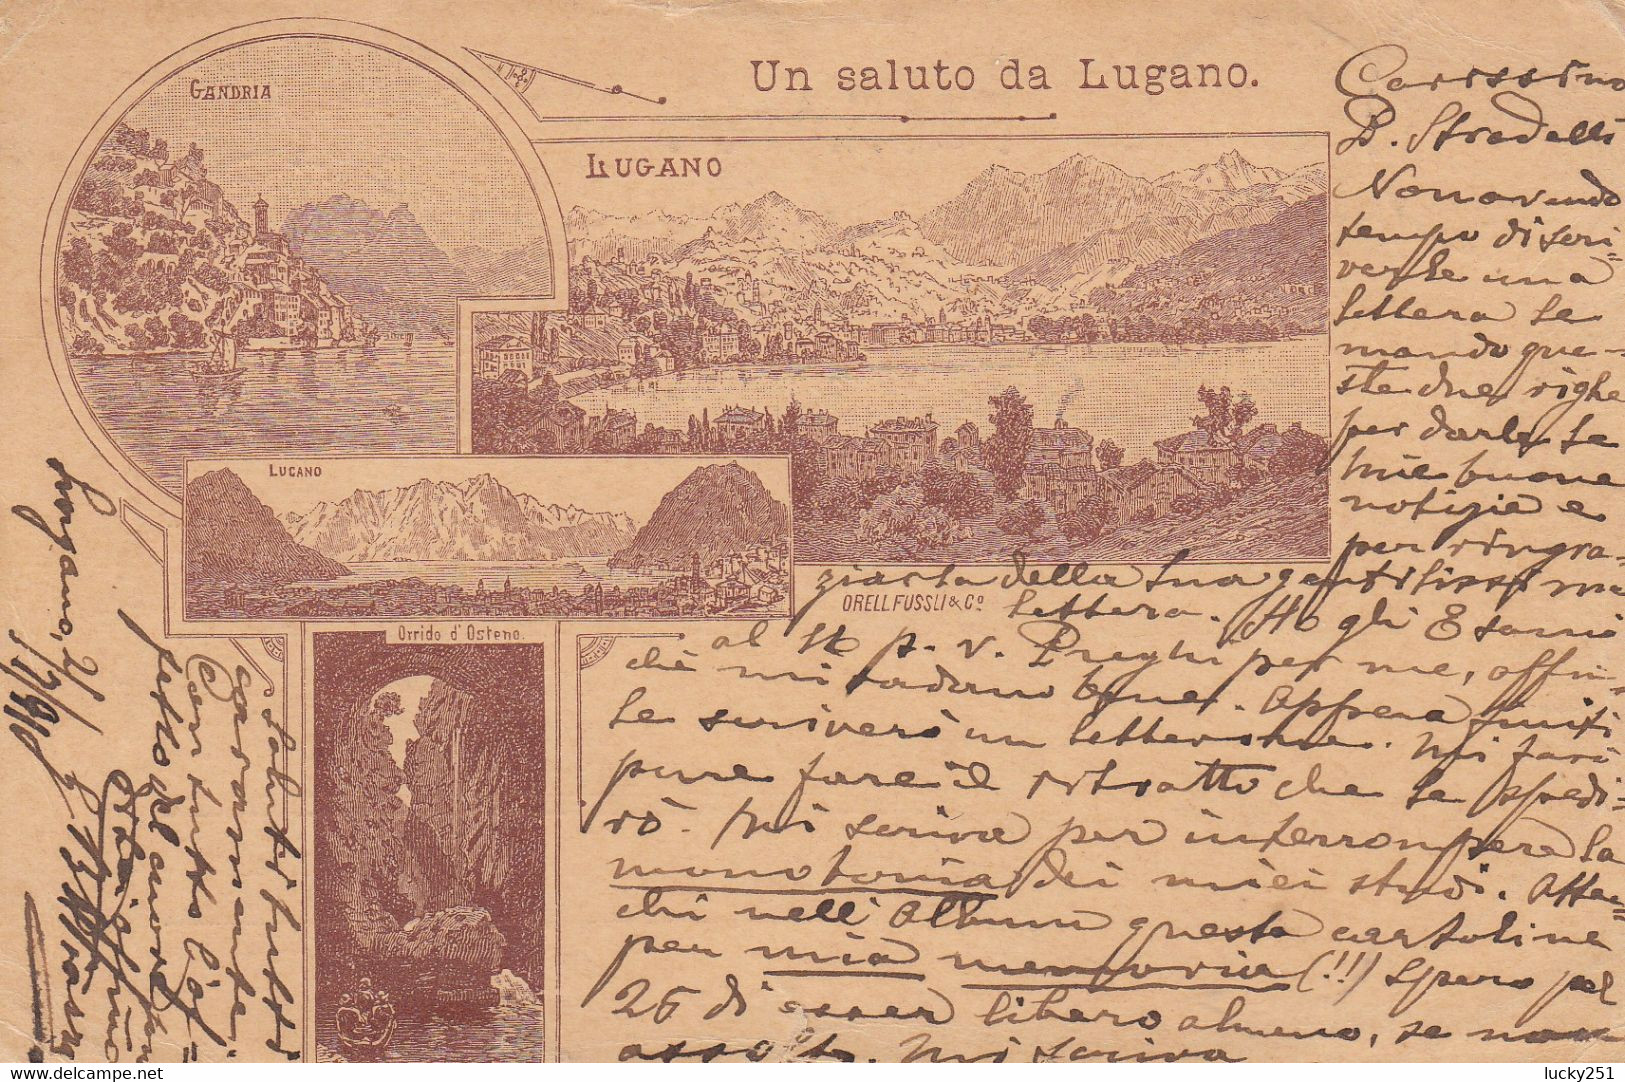 Un saluto da Lugano.
GANDRIA
LUGANO
LUGANO
ORELL FUSSLI & Co
Orrido d'Osteno.
Carissimo
D. Stradelli
Non avendo
tempo di scri=
verle una
lettera le
mando que=
ste due righe
per darle le
mie buone
notizie e
per ringra=
ziarla della sua gentilissima
lettera. Ho gli Esami
al p. v. Preghi per me, affin=
chè mi vadano bene. Appena finiti
le scriverò un letterone. Mi farò
pure fare il ritratto che le spedi=
rò. Mi scriva per interrompere la
monotonia dei miei studi. Attac=
chi nell'Album questa cartolina
per mia memoria (!!) Spero pel
26 di esser libero almeno, se non
assolto. Mi scriva
Lugano, 2/
Saluti tutti
caramente.
Con tutto l'af=
fetto del cuore
lucky251